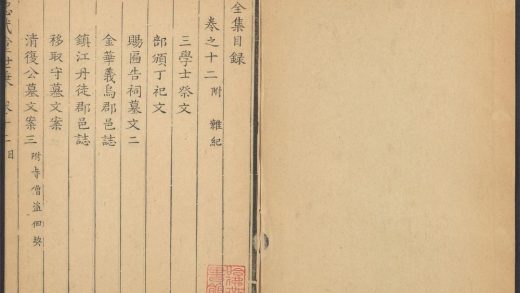 全集目録
卷之十二 附 雜紀
三學士祭文
部頒丁祀文
賜區告祠墓文二
金華義烏郡邑誌
鎮江丹徒郡邑誌
移取守墓文案
清復公墓文案三 附寺僧盜佃契